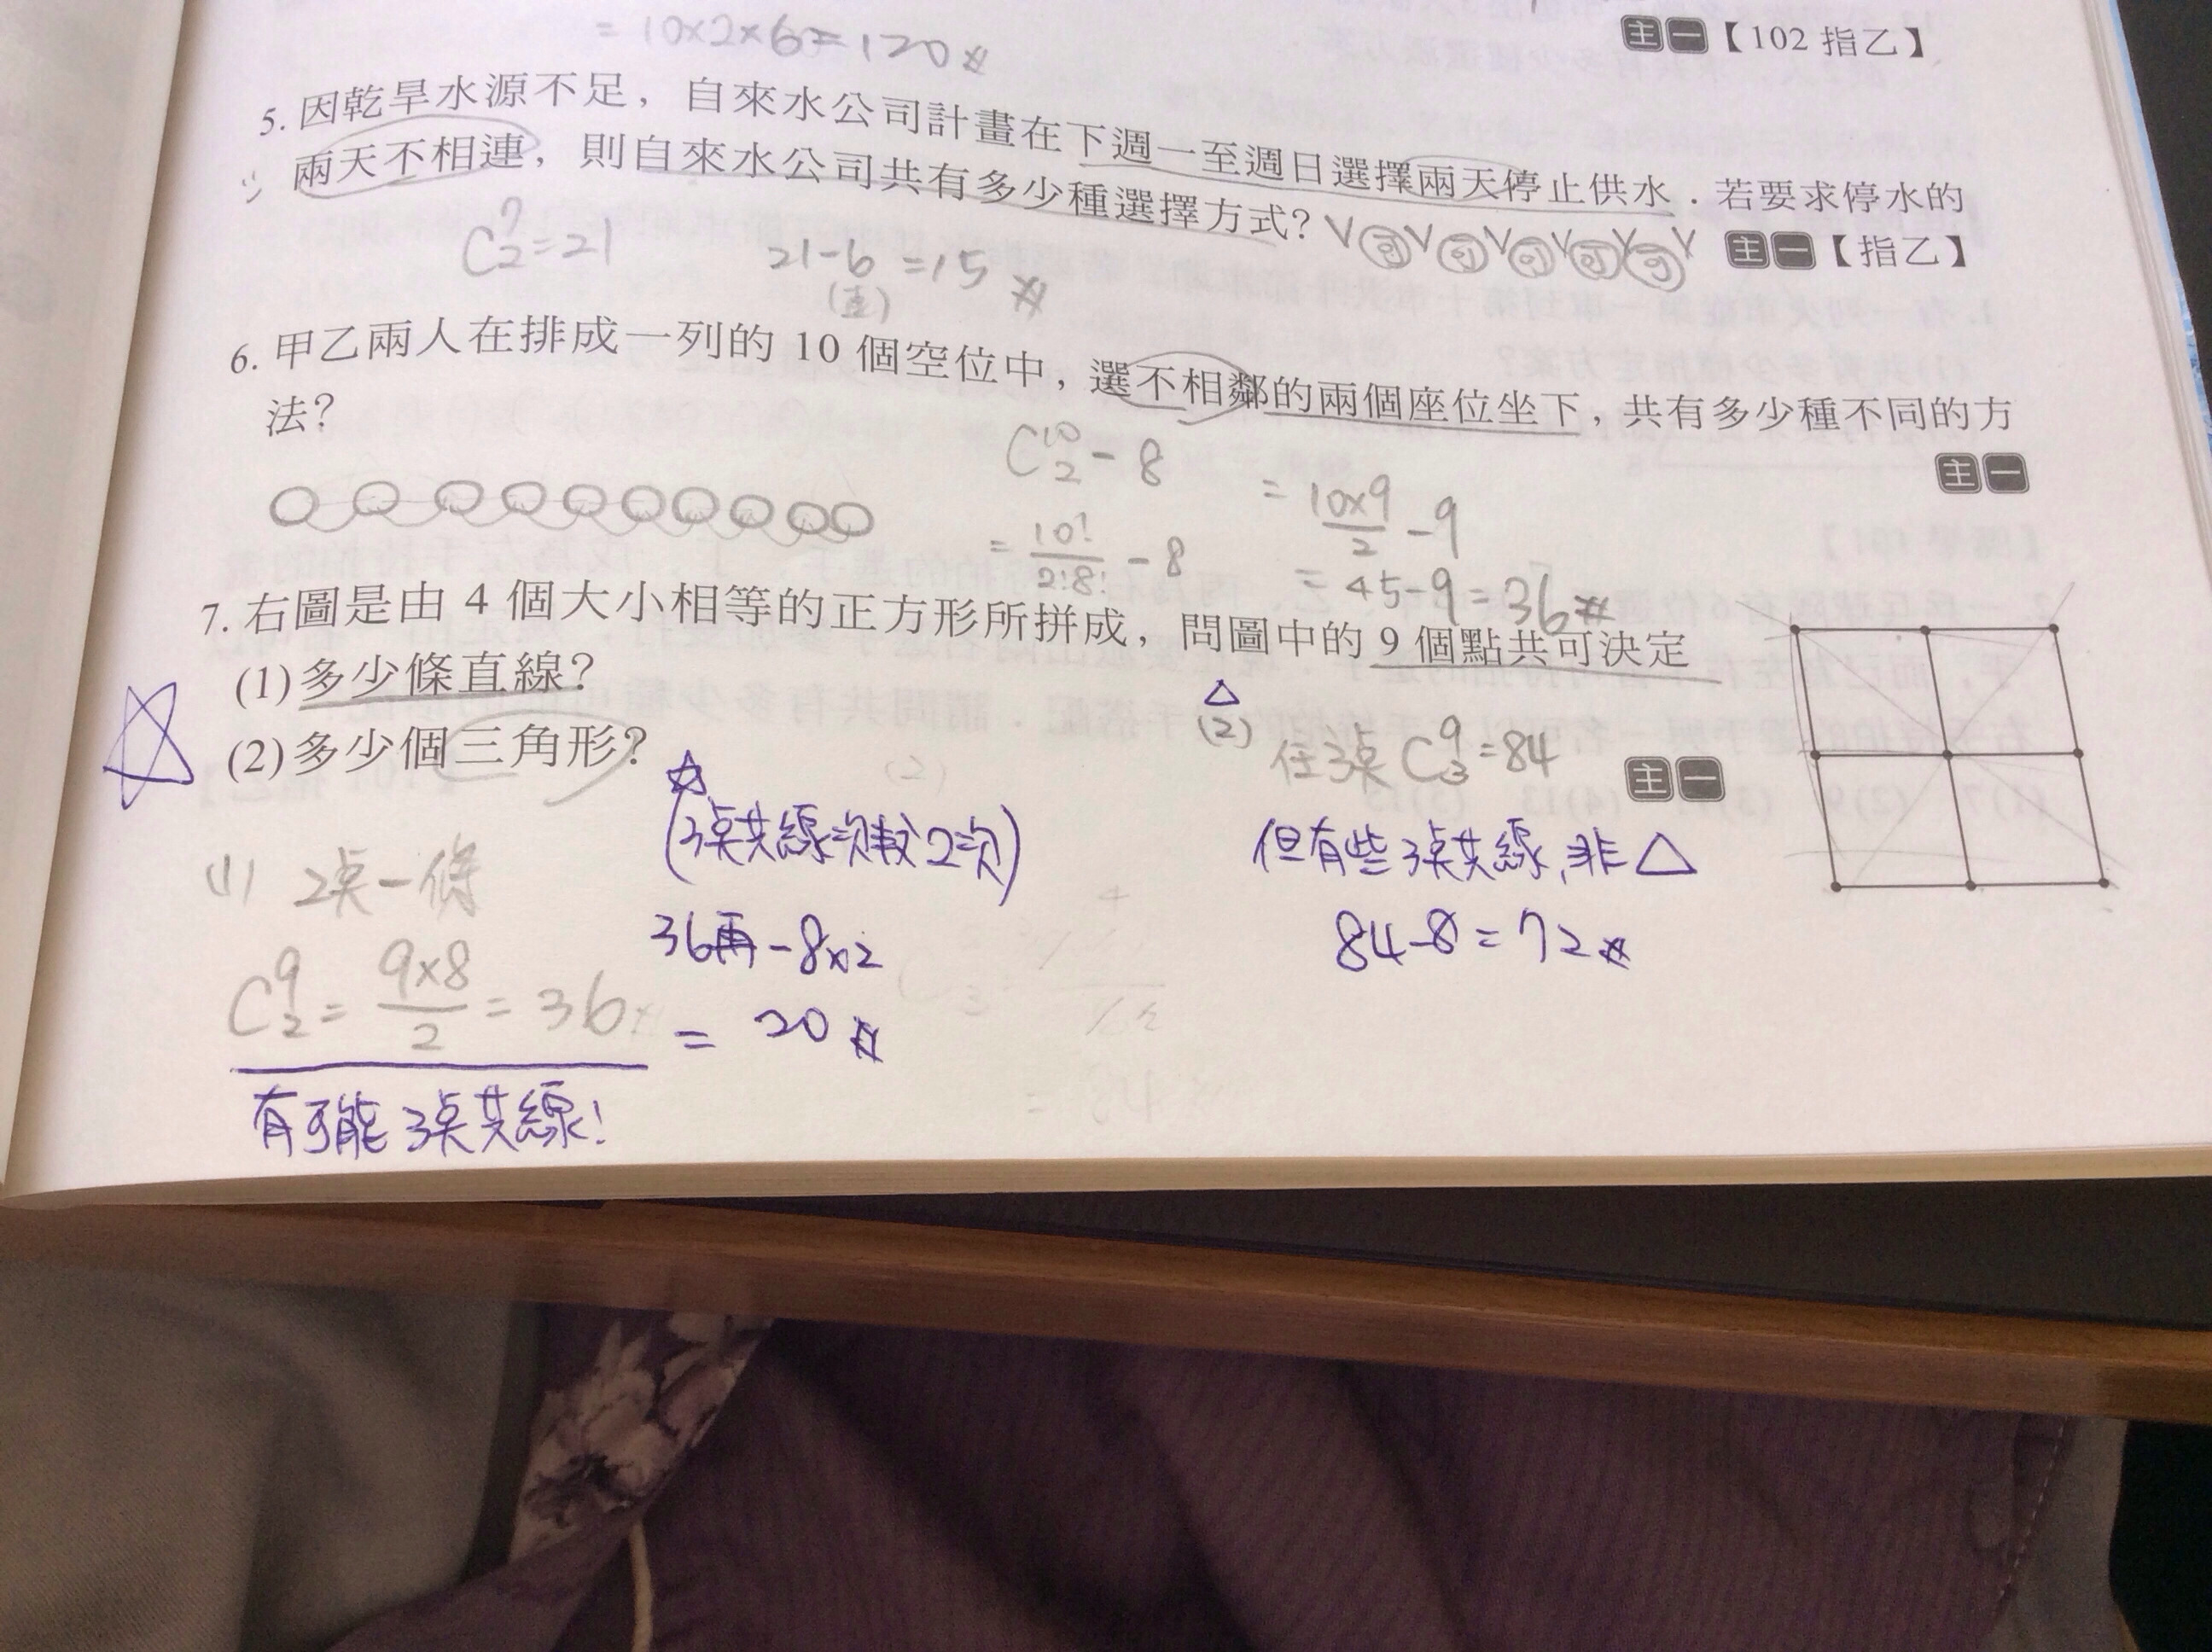 = 10×2×6 = 120
主一【102 指乙】
5. 因乾旱水源不足，自來水公司計畫在下週一至週日選擇兩天停止供水．若要求停水的
兩天不相連，則自來水公司共有多少種選擇方式？
主一【指乙】
C⁷₂ = 21
21-6 = 15
6. 甲乙兩人在排成一列的 10 個空位中，選不相鄰的兩個座位坐下，共有多少種不同的方
法？
主一
C¹⁰₂ - 8
= 10!/2!8! - 8
= 10×9/2 - 9
= 45-9 = 36
7. 右圖是由 4 個大小相等的正方形所拼成，問圖中的 9 個點共可決定
(1)多少條直線？
(2)多少個三角形？
主一
(1) 2點一條
C⁹₂ = 9×8/2 = 36
有可能3點共線！
(3點共線三次較2次)
36再-8×2
= 20
(2) 任3點 C⁹₃ = 84
但有些3點共線,非△
84-8=72